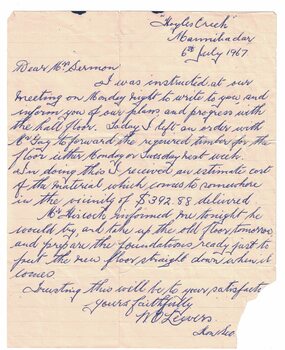 "Hoyles Creek"
Mannibadar
6th July 1967
Dear Mr Sermon
I was instructed at our
meeting on Monday night to write to you and
inform you of our plans and progress with
the hall floor. Today I left an order with
Mr Guy to forward the required timber for the
floor either Monday or Tuesday next week.
In doing this I received an estimate cost
of the material which comes to somewhere
in the vicinity of $392.88 delivered
Mr Hiscock informed me tonight he
would by, and take up the old floor tomorrow
and prepare the foundations ready just to
put the new floor straight down when it
comes
Trusting this will be to your satisfact
Yours faithfully
Lewers
Hon Sec.